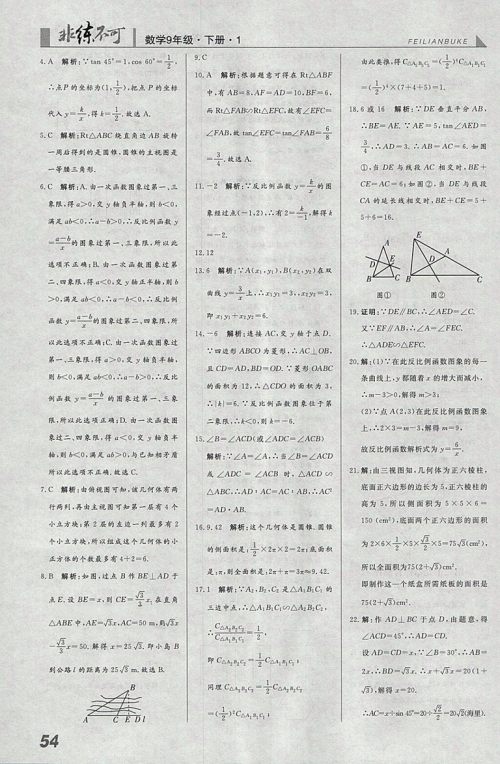 非练不可
数学9年级·下册·1
FEILIANBUKE
4. A 解析:∵tan 45°=1, cos 60°=1/2
∴点P的坐标为(1, 1/2),把点P的坐标
代入y=k/x,得k=1/2.故选A.
5. C 解析:Rt△ABC绕直角边AB旋转
一周后得到的是圆锥,圆锥的主视图是
一等腰三角形.
6. C 解析:A.由一次函数图象过第一、三
象限,得a>0,交y轴负半轴,则b<0,
满足ab<0,∴a-b>0,∴反比例函数y
=(a-b)/x的图象过第一、三象限,所以此
选项不正确;B.由一次函数图象过第
二、四象限,得a<0,交y轴正半轴,则b
>0,满足ab<0,∴a-b<0,∴反比例
函数y=(a-b)/x的图象过第二、四象限,所
以此选项不正确;C.由一次函数图象过
第一、三象限,得a>0,交y轴负半轴,
则b<0,满足ab<0,∴a-b>0,∴反比
例函数y=(a-b)/x的图象过第一、三象
限,所以此选项正确;D.由一次函数图
象过二、四象限,得a<0,交y轴负半
轴,则b<0,满足ab>0,与已知相矛盾
所以此选项不正确.故选C.
7. C 解析:由俯视图可知,该几何体有两
行两列,再由主视图可知第一层有4个
小立方块;第2层的左边一列最多有2
个小立方块,所以组成这个几何体的小
正方体的个数最多有4+2=6.
8. B 解析:如图,过点B作BE⊥AD于
点E.设BE=x,则CE=√3/3x.在直角
△ABE中,AE=√3x,AC=50 m,则√3x
-√3/3x=50.解得x=25√3.即小岛B
到公路l的距离为25√3 m.故选B.
B
A C E D l
54
9. C
10. A 解析:根据题意可得在Rt△ABF
中,有AB=8,AF=AD=10,BF=6,
而Rt△FAB∽Rt△EFC,故有∠EFC=
∠FAB,故tan∠EFC=tan∠FAB=6/8
=3/4.故选A.
11. -2 解析:∵反比例函数y=k/x的图
象经过点(-1,2),∴有2=k/-1,解得k
=-2.
12. 12
13. 6 解析:∵A(x₁,y₁),B(x₂,y₂)在双
曲线y=3/x上,∴x₁y₁=3,x₂y₂=3,
即x₁y₁+x₂y₂=6.
14. -6 解析:连接AC,交y轴于点D.
∵四边形ABCO为菱形,∴AC⊥OB,
且CD=AD,BD=OD.∵菱形OABC
的面积为12,∴△CDO的面积为3,
∴|k|=6.∵反比例函数图象位于第
二象限,∴k<0,则k=-6.
15. ∠B=∠ACD(或∠ADC=∠ACB)
解析:∵∠A=∠A,∴当∠B=∠ACD
或∠ADC=∠ACB时,△ACD∽
△ABC.∴AD:AC=AC:AB.∴AC²
=AD·AB.
16. 9.42 解析:这个几何体是圆锥.圆锥
的侧面积是:1/2×2π×2=2π;底面积
是:π,则全面积是:2π+π=3π≈9.42.
17. 1/7 解析:∵A₂,B₂,C₂是△A₁B₁C₁的
三边中点,∴△A₁B₁C₁∽△A₂B₂C₂,
∴C△A₂B₂C₂/C△A₁B₁C₁=1/2,
即C△A₂B₂C₂=1/2C△A₁B₁C₁;
同理C△A₃B₃C₃=1/2C△A₂B₂C₂
=(1/2)²C△A₁B₁C₁,
由此类推,得C△A₅B₅C₅=(1/2)⁴C△A₁B₁C₁
=(1/2)⁴×(7+4+5)=1.
18. 6或16 解析:∵DE垂直平分AB,
∴BE=AE.∵AE=5,tan∠AED=
3/4,∴AD=3.∴AB=AC=6.如图
①,当DE与线段AC相交时,BE+
CE=AC=6;如图②,当DE与线段
CA的延长线相交时,BE+CE=5+
5+6=16.
A
D E
B C
图①
E
A
D
B C
图②
19. 证明:∵DE∥BC,∴∠AED=∠C.
又∵EF∥AB,∴∠A=∠FEC.
∴△ADE∽△EFC.
20. 解:(1)∵在此反比例函数图象的每一
条曲线上,y都随着x的增大而减小,
∴m-3>0.解得m>3;
(2)∵点A(2,3)在此反比例函数图象
上,∴2×3=m-3,解得m=9,
故反比例函数解析式为y=6/x.
21. 解:由三视图知,几何体为正六棱柱,
底面正六边形的边长为5,正六棱柱的
高为5,所以侧面积为5×5×6=
150 (cm²),底面两个正六边形的面积
为2×6×1/2×5×√3/2×5=75√3(cm²),
所以全面积为75(2+√3)cm².
即制作这一个纸盒所需纸板的面积是
75(2+√3)cm².
22. 解:作AD⊥BC于点D,由题意,得
∠ACD=45°,∴AD=CD.
设AD=CD=x,∵∠B=30°,∴AB=
2x,∴BD=√3x.∴x+√3x=20(1+
√3),解得x=20.
∴AC=x÷sin 45°=20÷√2/2=20√2(海里).